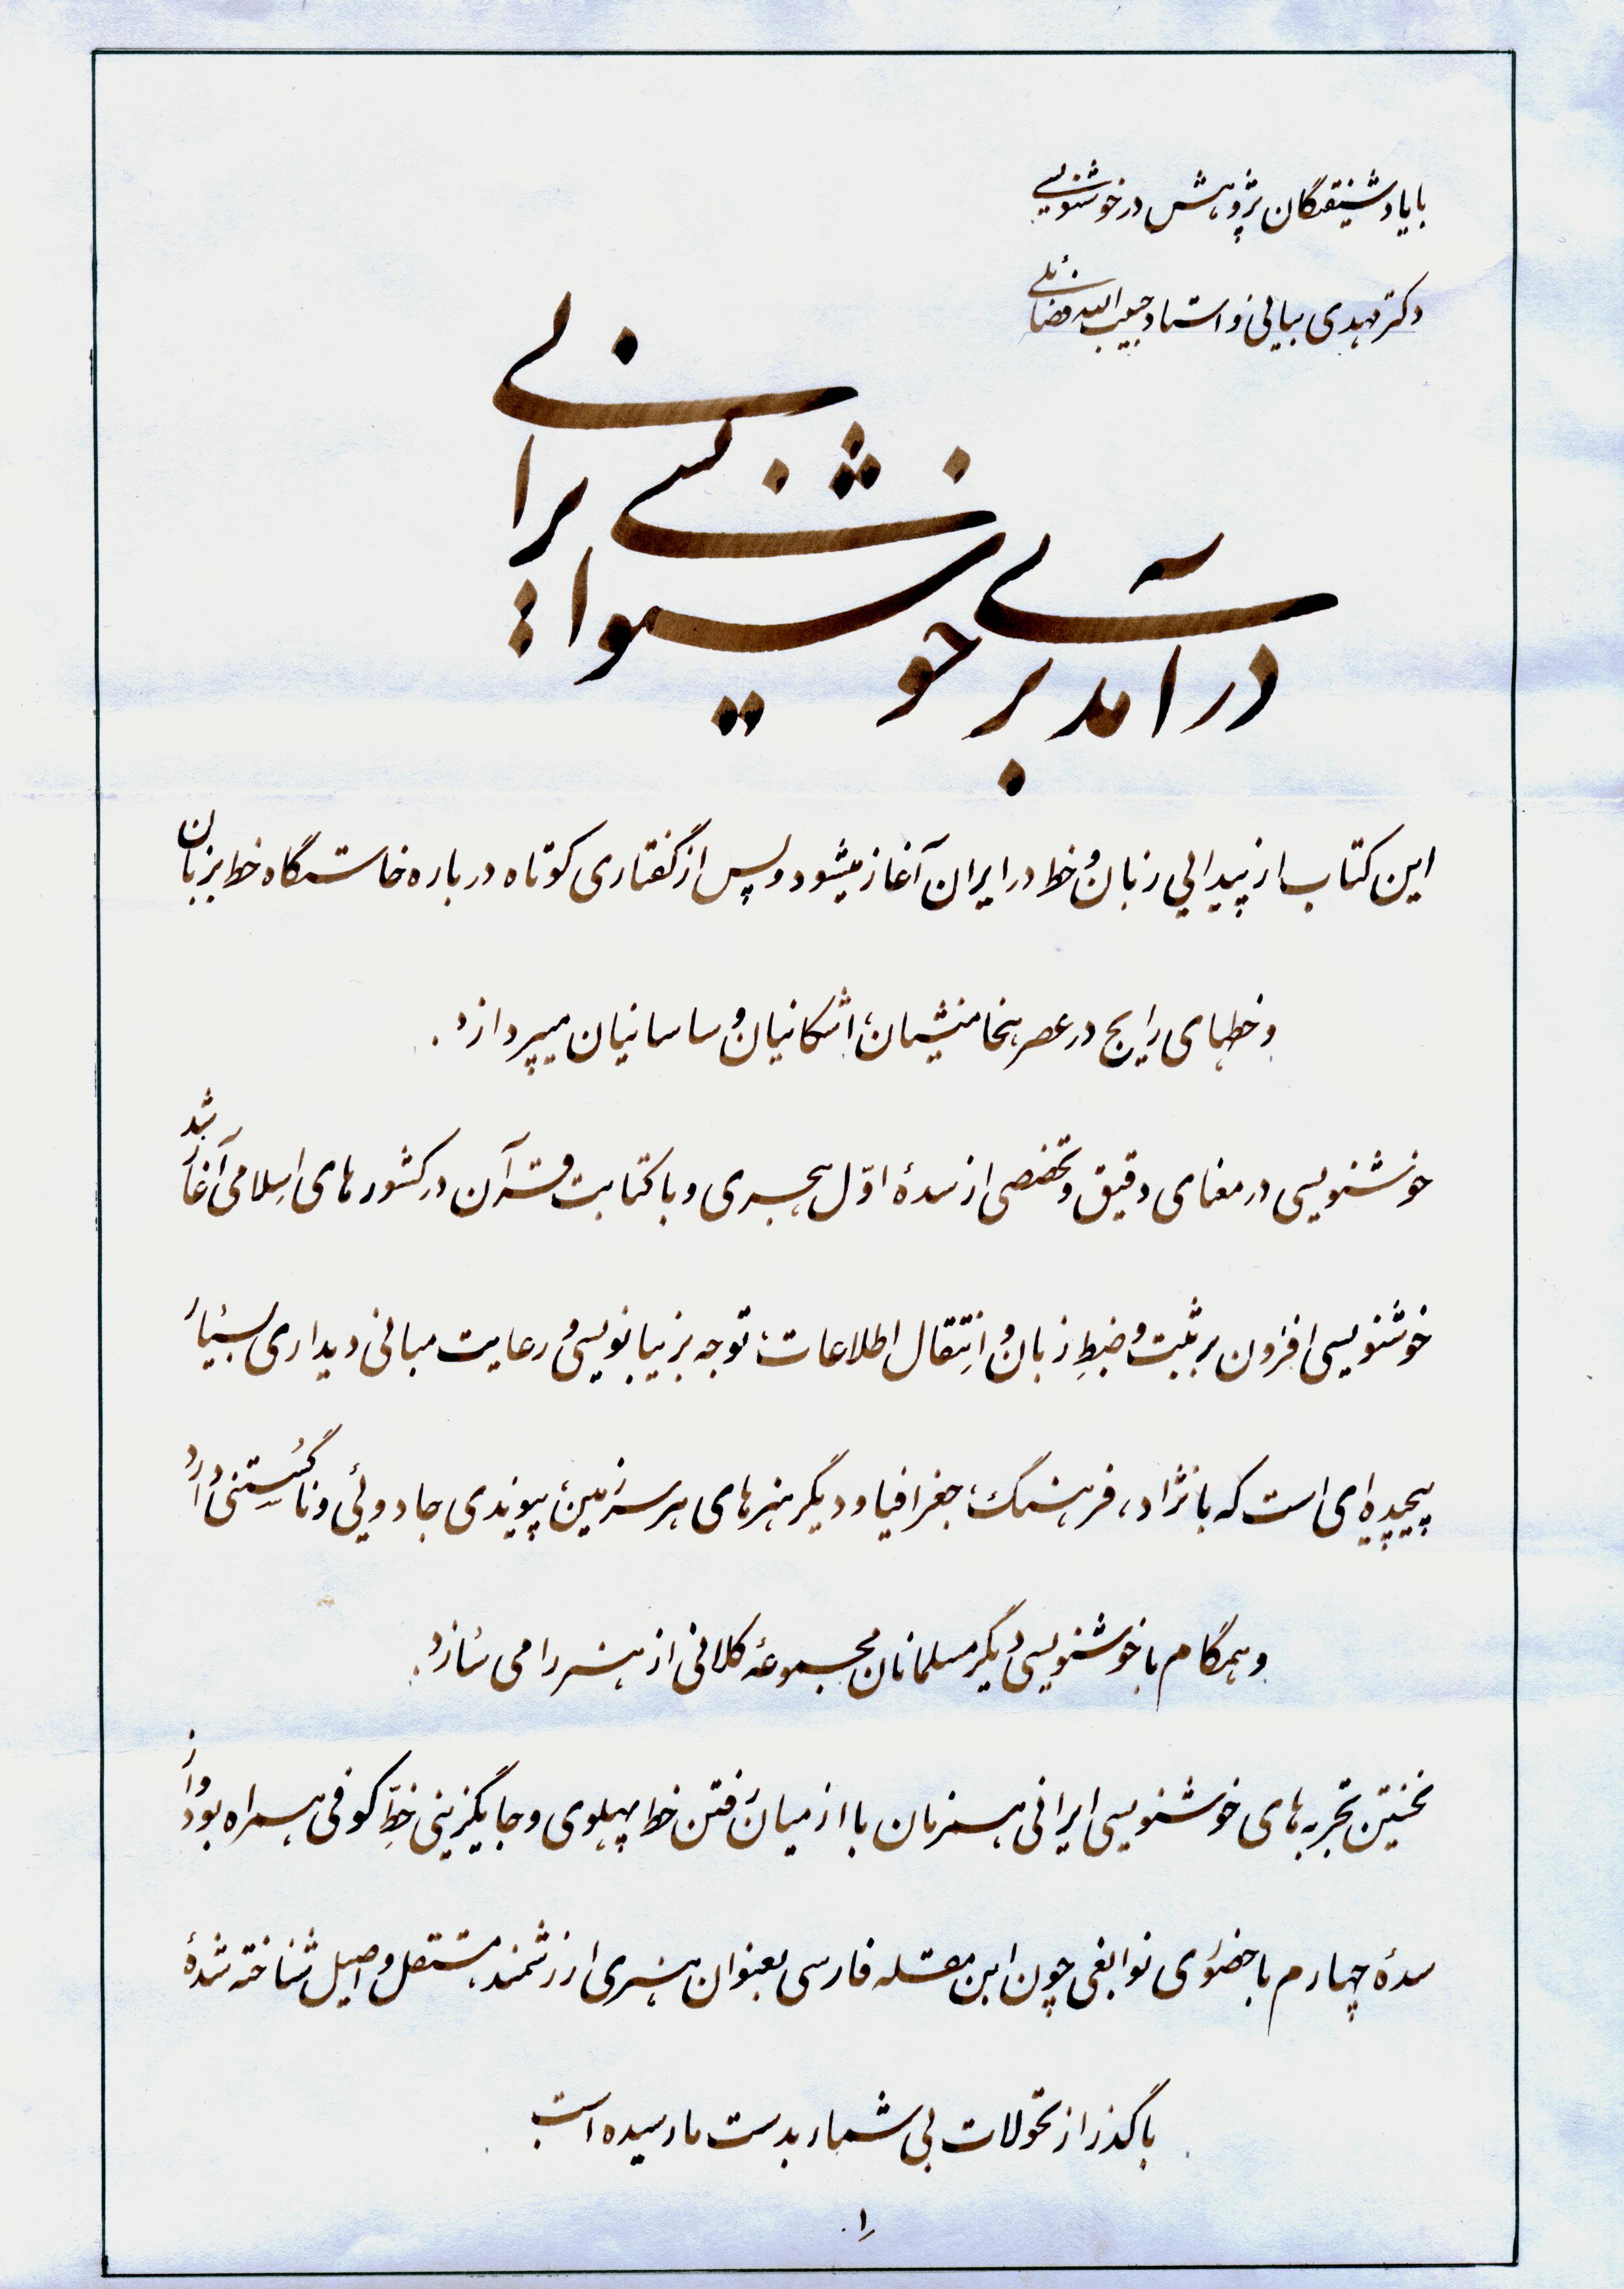 با یاد شیفتگان پژوهش در خوشنویسی
دکتر مهدی بیانی و استاد حبیب الله فضائلی
درآمدی بر خوشنویسی ایرانی
این کتاب از پیدایی زبان و خط در ایران آغاز میشود و پس از گفتاری کوتاه درباره خاستگاه خط بر زبان
و خطهای رایج در عصر هخامنشیان، اشکانیان و ساسانیان میپردازد.
خوشنویسی در معنای دقیق و تخصصی از سدهٔ اوّل هجری و با کتابت قرآن در کشورهای اسلامی آغاز شد
خوشنویسی افزون بر ثبت و ضبطِ زبان و اِنتقال اطلاعات، توجه بزیبانویسی و رعایت مبانی دیداری بسیار
پیچیده‌ای است که با نژاد، فرهنگ، جغرافیا و دیگر هنرهای هر سرزمین، پیوندی جادوئی و ناگسستنی دارد
و همگام با خوشنویسی دیگر مسلمانان مجموعهٔ کلانی از هنر را می سازد.
نخستین تجربه‌های خوشنویسی ایرانی همزمان با از میان رفتن خط پهلوی و جایگزینی خطِّ کوفی همراه بود و از
سدهٔ چهارم با نوابغی چون ابن مقله فارسی بعنوان هنری ارزشمند، مستقل و اصیل شناخته شد و
با گذر از تحولات بی شمار بدست ما رسیده است.
۱